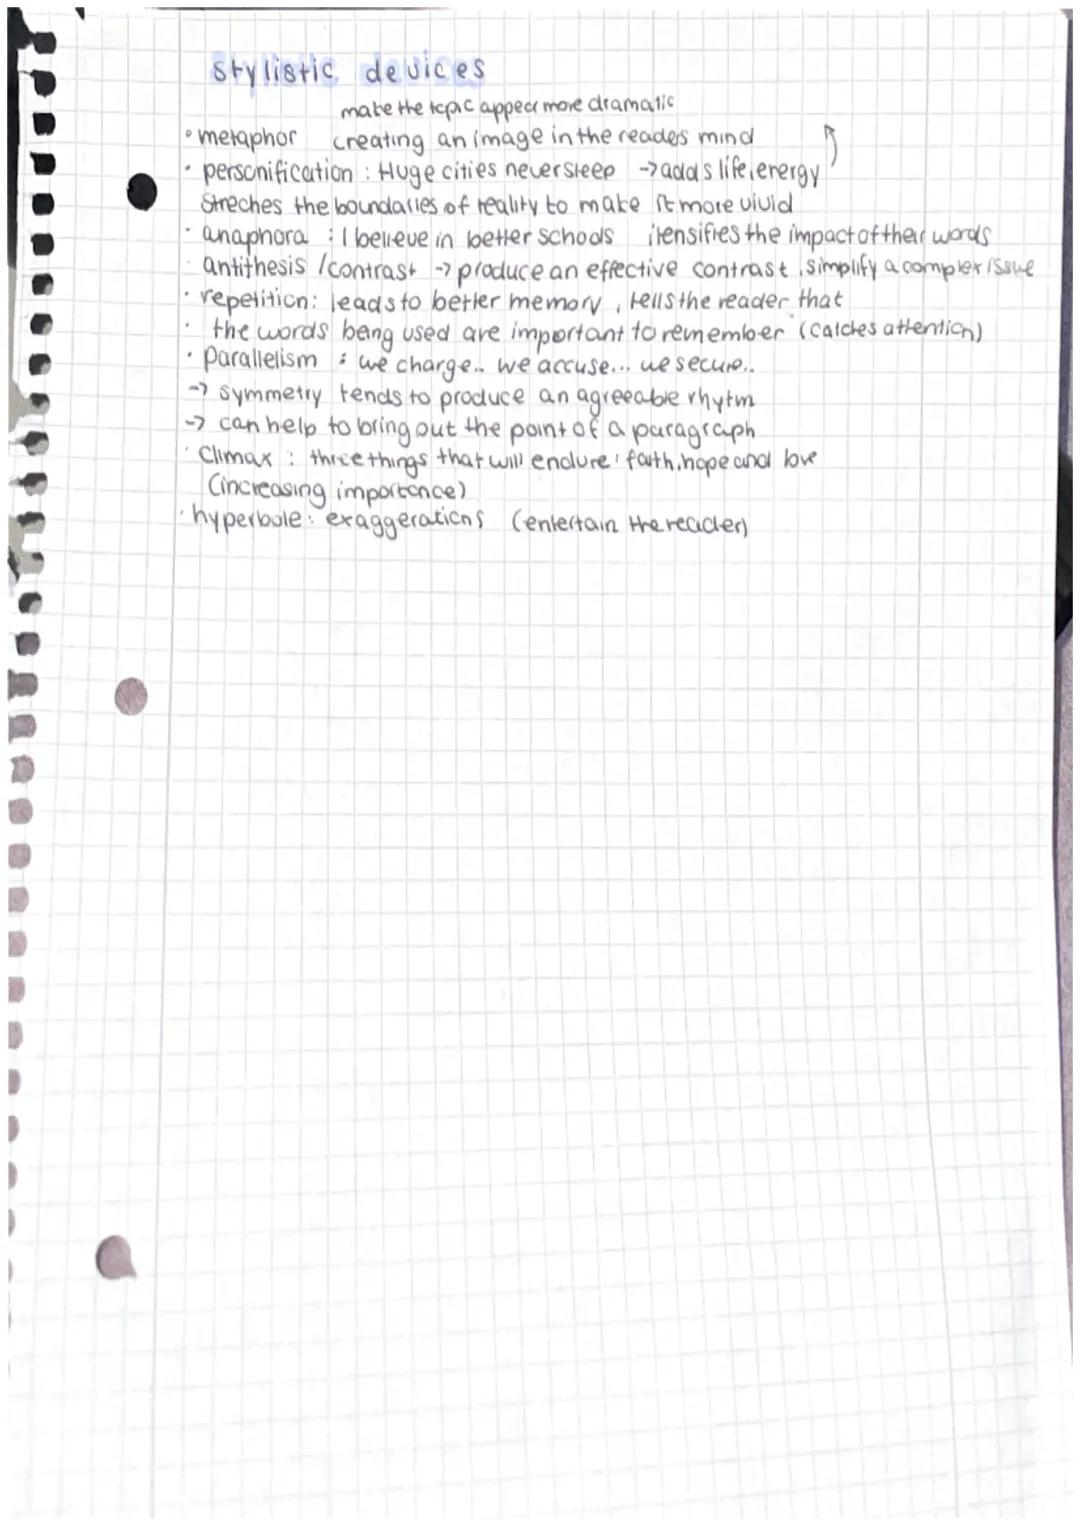 stylistic devices
make the topic appear more dramatic
• metaphor creating an image in the readers mind
• personification : Huge cities never sleep -> adds life, energy
streches the boundaries of reality to make it more vivid
• anaphora : I believe in better schools itensifies the impact of their words
• antithesis / contrast -> produce an effective contrast, simplify a complex issue
• repetition: leads to better memory, tells the reader that
• the words being used are important to remember (catches attention)
• Parallelism : we charge.. we accuse... we secure..
-> symmetry tends to produce an agreeable rhytm
-> can help to bring out the point of a paragraph
• Climax : three things that will endure: faith, hope and love
(increasing importance)
• hyperbole: exaggerations (entertain the reader)